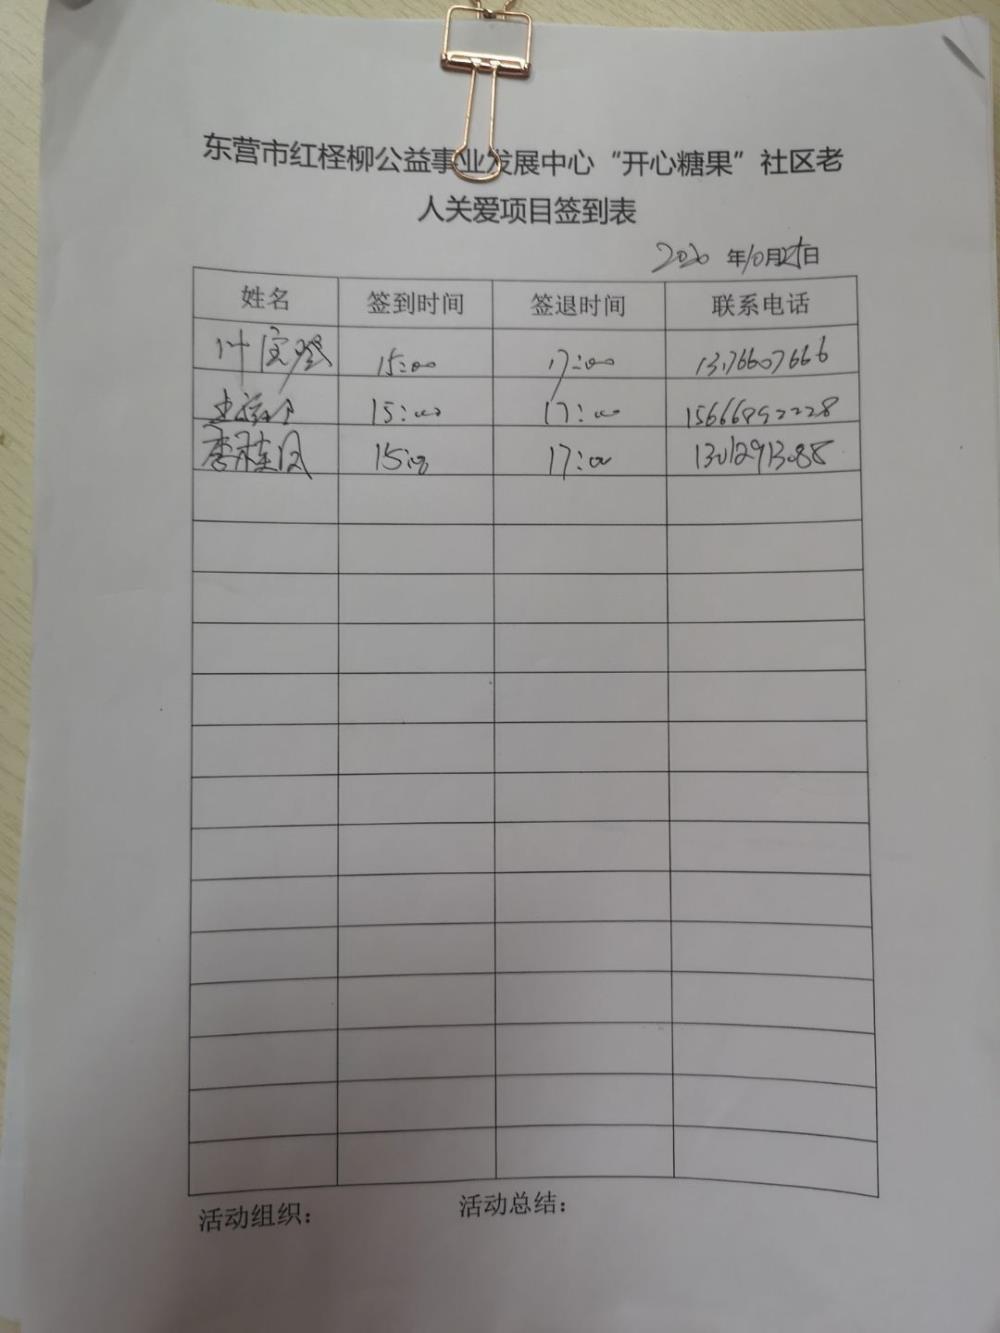 东营市红柽柳公益事业发展中心“开心糖果”社区老
人关爱项目签到表
2020 年10月25日
姓名 签到时间 签退时间 联系电话
叶宝登 15:00 17:00 13176607666
15:00 17:00
李桂凤 15:00 17:00 13012913088
活动组织： 活动总结：